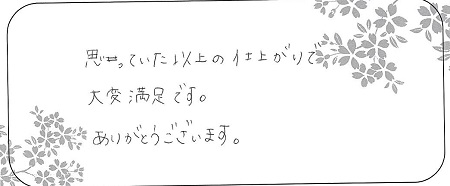 思っていた以上の仕上がりで
大変満足です。
ありがとうございます。